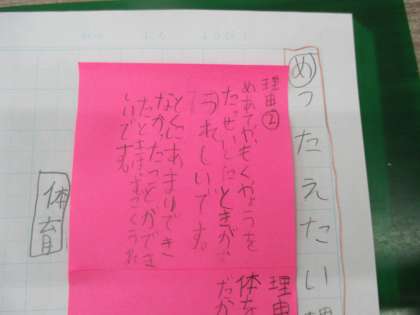 めつたえたい理
理由②
めあてや、もくひょうを
たっせいしたときが、
うれしいです。
とくにあまりでき
なかったことができ
たときはすごくうれ
しいです。
理由
体を
だか
体育